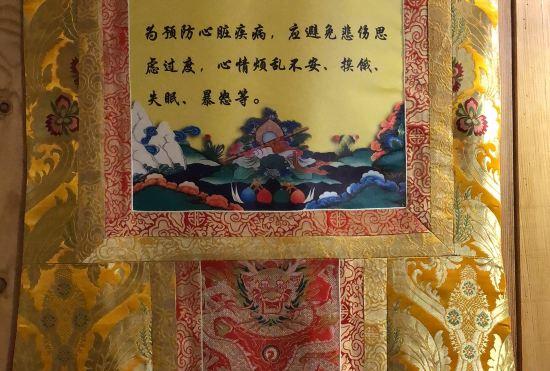 为预防心脏疾病，应避免悲伤思
虑过度，心情烦乱不安、挨饿、
失眠、暴怒等。